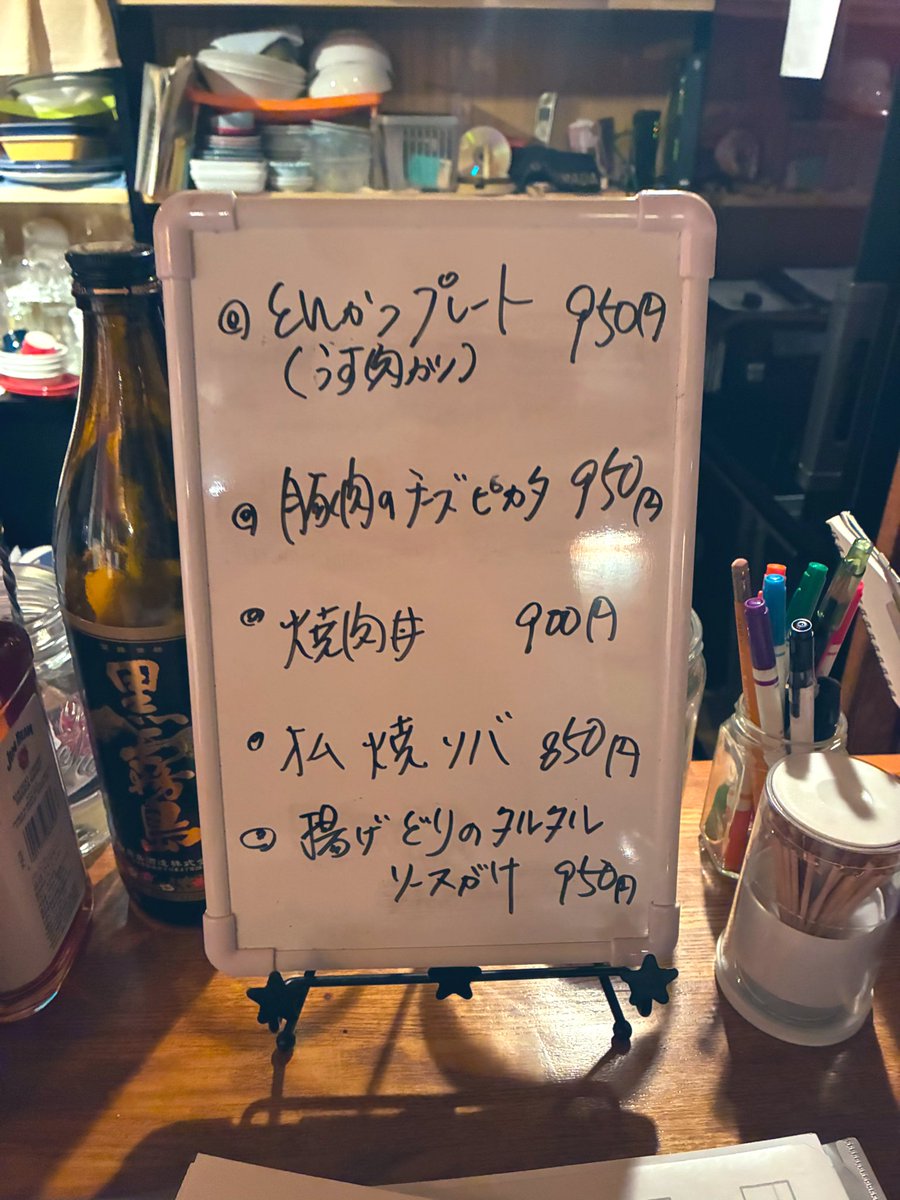 とんかつプレート 950円
(うす肉カツ)
豚肉のチーズピカタ 950円
焼肉丼 900円
オム焼ソバ 850円
揚げどりのタルタル
ソースがけ 950円
黒霧島